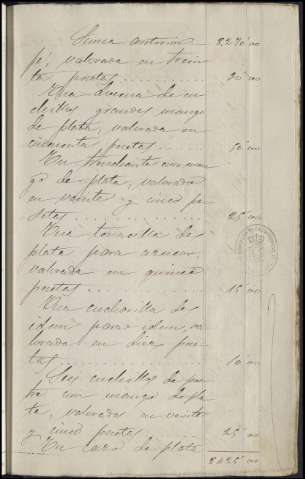 Suma anterior 8270 "00
pé, valorada en trein-
ta pesetas 30 "00
Una docena de cu-
chillos grandes mango
de plata, valorada en
cincuenta pesetas 50 "00
Un trinchante con man-
go de plata, valorado
en veinte y cinco pe-
setas 25 "00
Una tenacilla de
plata para azucar,
valorada en quince
pesetas 15 "00
Una cucharilla de
idem para idem, va-
lorada en diez pese-
tas 10 "00
Seis cuchillos de pos-
tre con mango de pla-
ta, valorados en veinte
y cinco pesetas 25 "00
Un cazo de plata
8425 "00